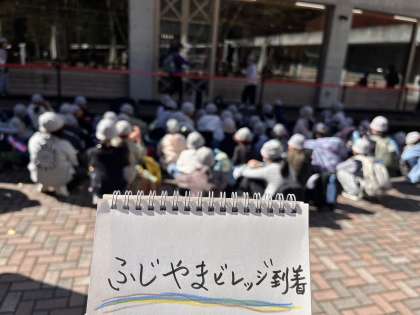 ふじやまビレッジ到着